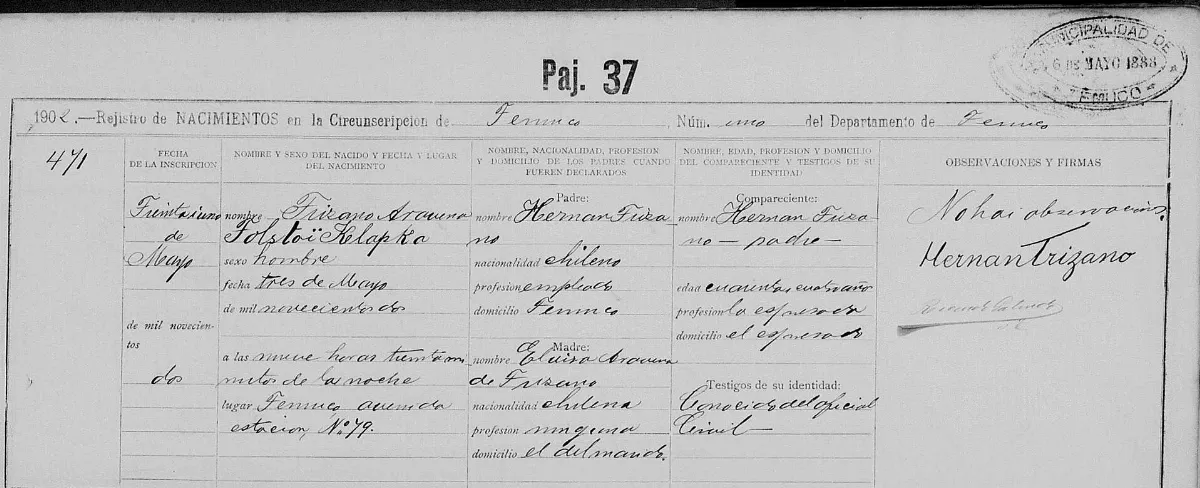 MUNICIPALIDAD DE
6 DE MAYO 1888
TEMUCO
Paj. 37
1902.—Rejistro de NACIMIENTOS en la Circunscripcion de Temuco Núm. uno del Departamento de Temuco
471
FECHA
DE LA INSCRIPCION
Treinta i uno
de
Mayo
de mil novecien-
tos
dos
NOMBRE Y SEXO DEL NACIDO Y FECHA Y LUGAR
DEL NACIMIENTO
nombre Trizano Aravena
Tolstoï Klapka
sexo hombre
fecha tres de Mayo
de mil novecientos dos
a las nueve horas treinta mi
nutos de la noche
lugar Temuco, avenida
estacion, No. 79.
NOMBRE, NACIONALIDAD, PROFESION
Y DOMICILIO DE LOS PADRES CUANDO
FUEREN DECLARADOS
Padre:
nombre Hernan Triza
no
nacionalidad chileno
profesion empleado
domicilio Temuco
Madre:
nombre Eluisa Aravena
de Trizano
nacionalidad chilena
profesion ninguna
domicilio el del marido.
NOMBRE, EDAD, PROFESION Y DOMICILIO
DEL COMPARECIENTE Y TESTIGOS DE SU
IDENTIDAD
Compareciente:
nombre Hernan Triza-
no — padre —
edad cuarenta i cuatro años
profesion la espresada
domicilio el espresado
Testigos de su identidad:
Conocido del oficial
Civil —
OBSERVACIONES Y FIRMAS
No hai observacion.
Hernan Trizano